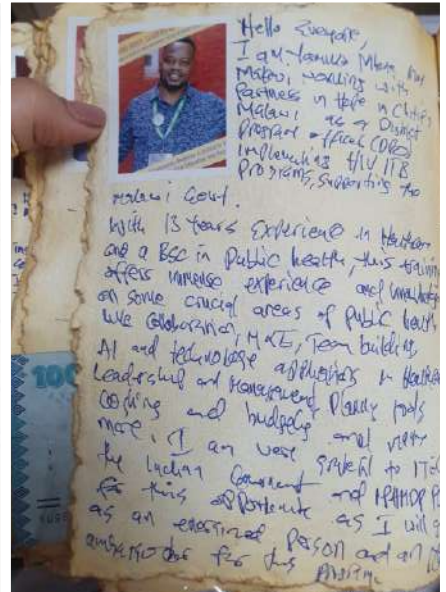 Hello Everyone,
I am
Malawi, working with
Partners in Hope in
Malawi as a District
Program officer (DPO)
Implementing HIV/TB
Programs, supporting the
Malawi Govt.
With 13 years experience in
and a BSC in Public health, this training
offers immense experience and
on some crucial areas of public health
like collaboration, M&E, Team building,
AI and technology applications in
Leadership and Management, Planning tools
and budgeting and many
more. I am very grateful to
the Indian Government and
for this opportunity as I will
as an person and an
ambassador for this Program.
100